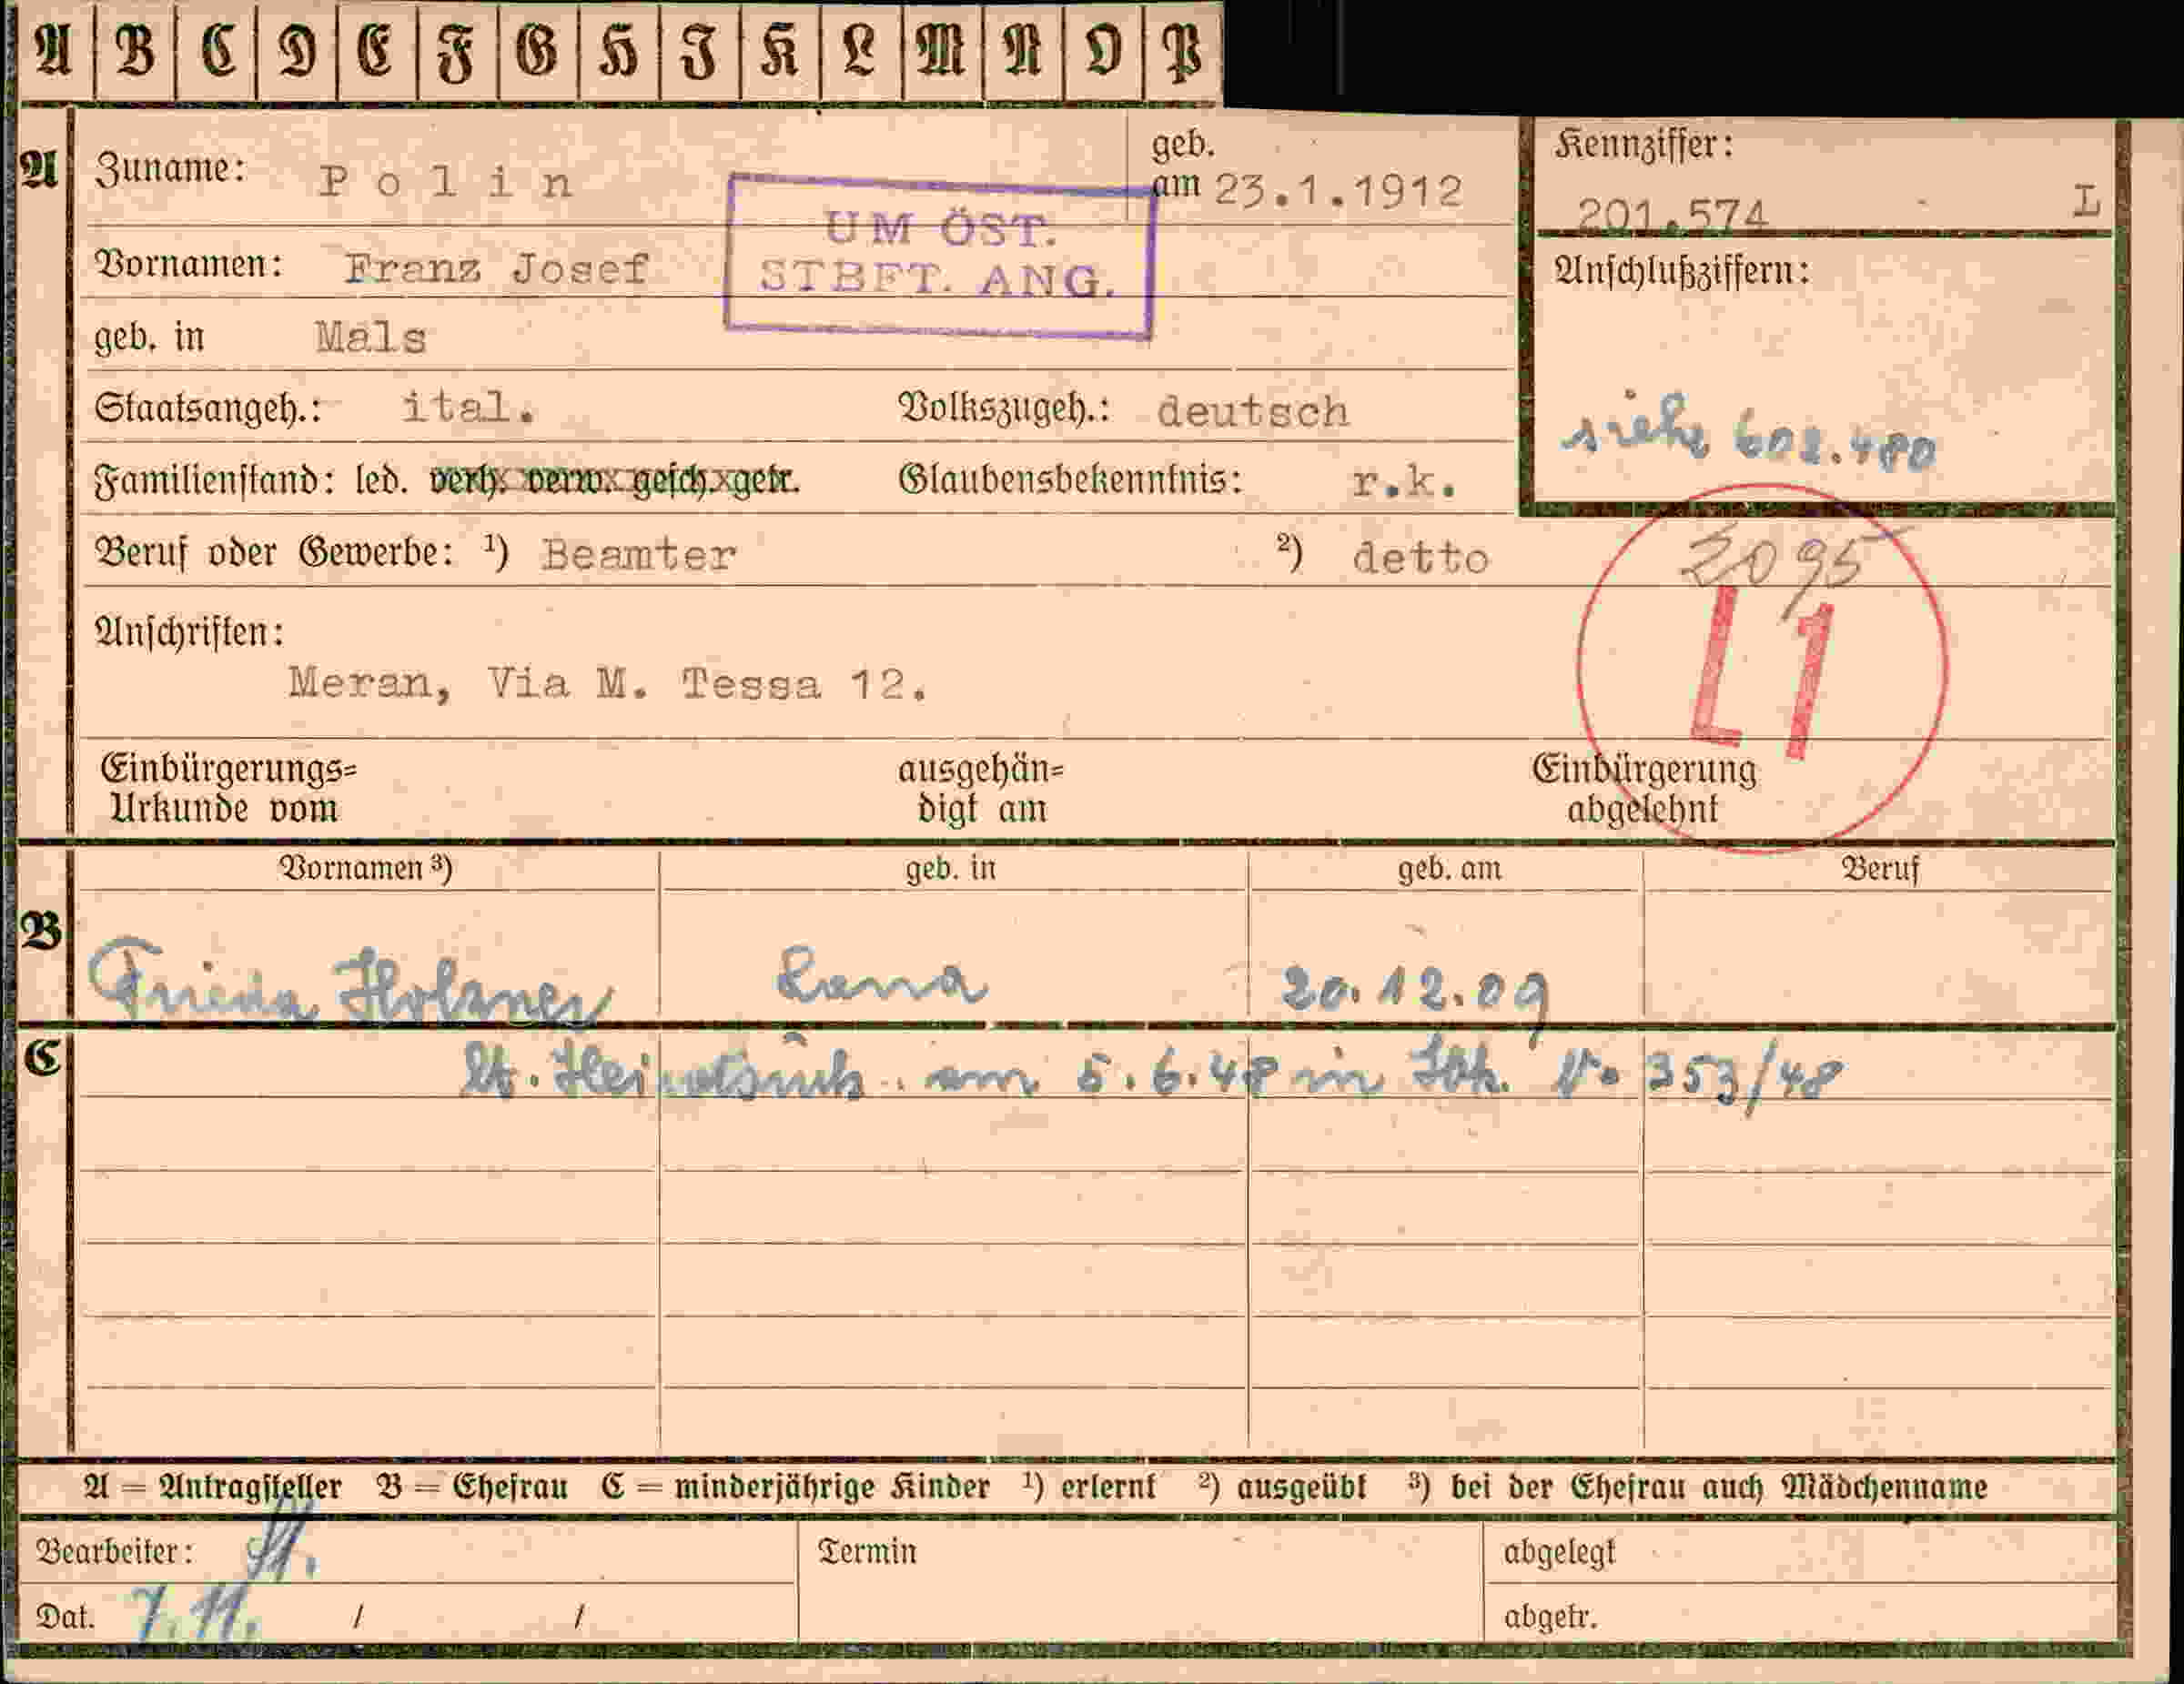 A B C D E F G H I K L M N O P
A Zuname: Polin geb. am 23.1.1912
Kennziffer: 201.574 L
UM ÖST. STBFT. ANG.
Vornamen: Franz Josef
Anschlußziffern:
geb. in Mals
Staatsangeh.: ital. Volkszugeh.: deutsch
siehe 602.480
Familienstand: led. verh. verw. gesch. getr. Glaubensbekenntnis: r.k.
Beruf oder Gewerbe: ¹) Beamter ²) detto
2095
L1
Anschriften:
Meran, Via M. Tessa 12.
Einbürgerungs= ausgehän= Einbürgerung
Urkunde vom digt am abgelehnt
Vornamen ³) geb. in geb. am Beruf
B Frieda Holzner Lana 20.12.09
C lt. am 5.6.48 in 353/48
A = Antragsteller B = Ehefrau C = minderjährige Kinder ¹) erlernt ²) ausgeübt ³) bei der Ehefrau auch Mädchenname
Bearbeiter: Termin abgelegt
Dat. 7.11. / / abgetr.